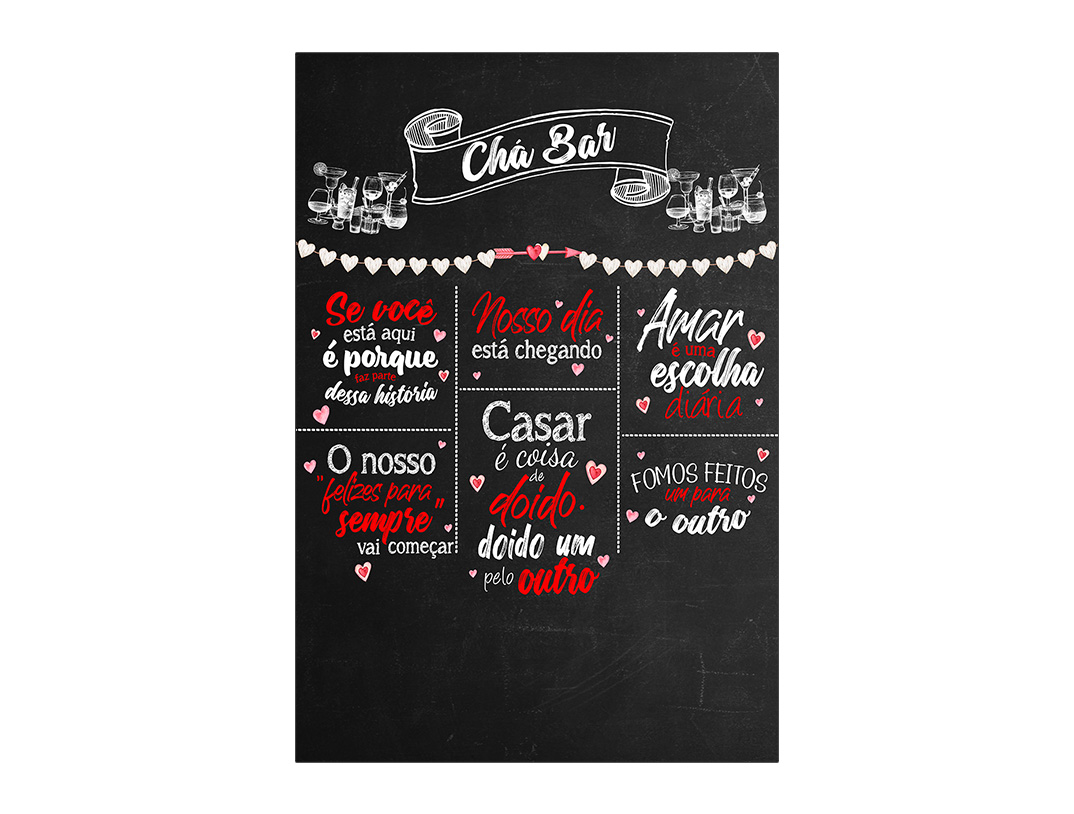 Chá Bar
Se você
está aqui
é porque
faz parte
dessa história
Nosso dia
está chegando
Amar
é uma
escolha
diária
O nosso
"felizes para
sempre"
vai começar
Casar
é coisa
de
doido.
doido um
pelo outro
FOMOS FEITOS
um para
o outro